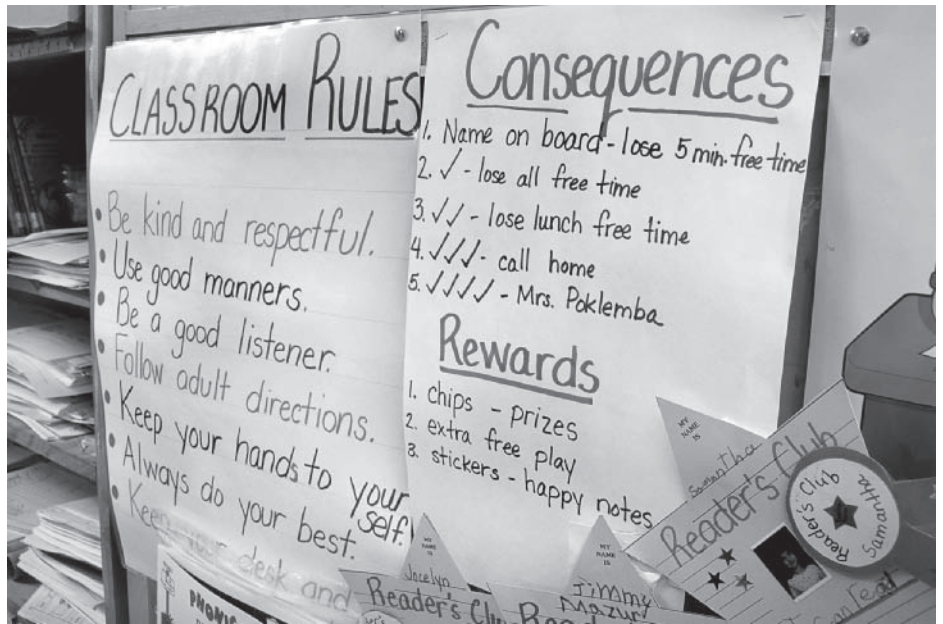 CLASSROOM RULES
• Be kind and respectful.
• Use good manners.
• Be a good listener.
• Follow adult directions.
• Keep your hands to your
self.
• Always do your best.
• Keep your desk and
Consequences
1. Name on board - lose 5 min. free time
2. ✓ - lose all free time
3. ✓✓ - lose lunch free time
4. ✓✓✓ - call home
5. ✓✓✓✓ - Mrs. Poklemba
Rewards
1. chips - prizes
2. extra free play
3. stickers - happy notes
MY
NAME
IS
Samantha
Reader's Club
Reader's Club
Samantha
MY
NAME
IS
Jocelyn
Reader's Club
MY
NAME
IS
Jimmy
Mazur
PHONIC